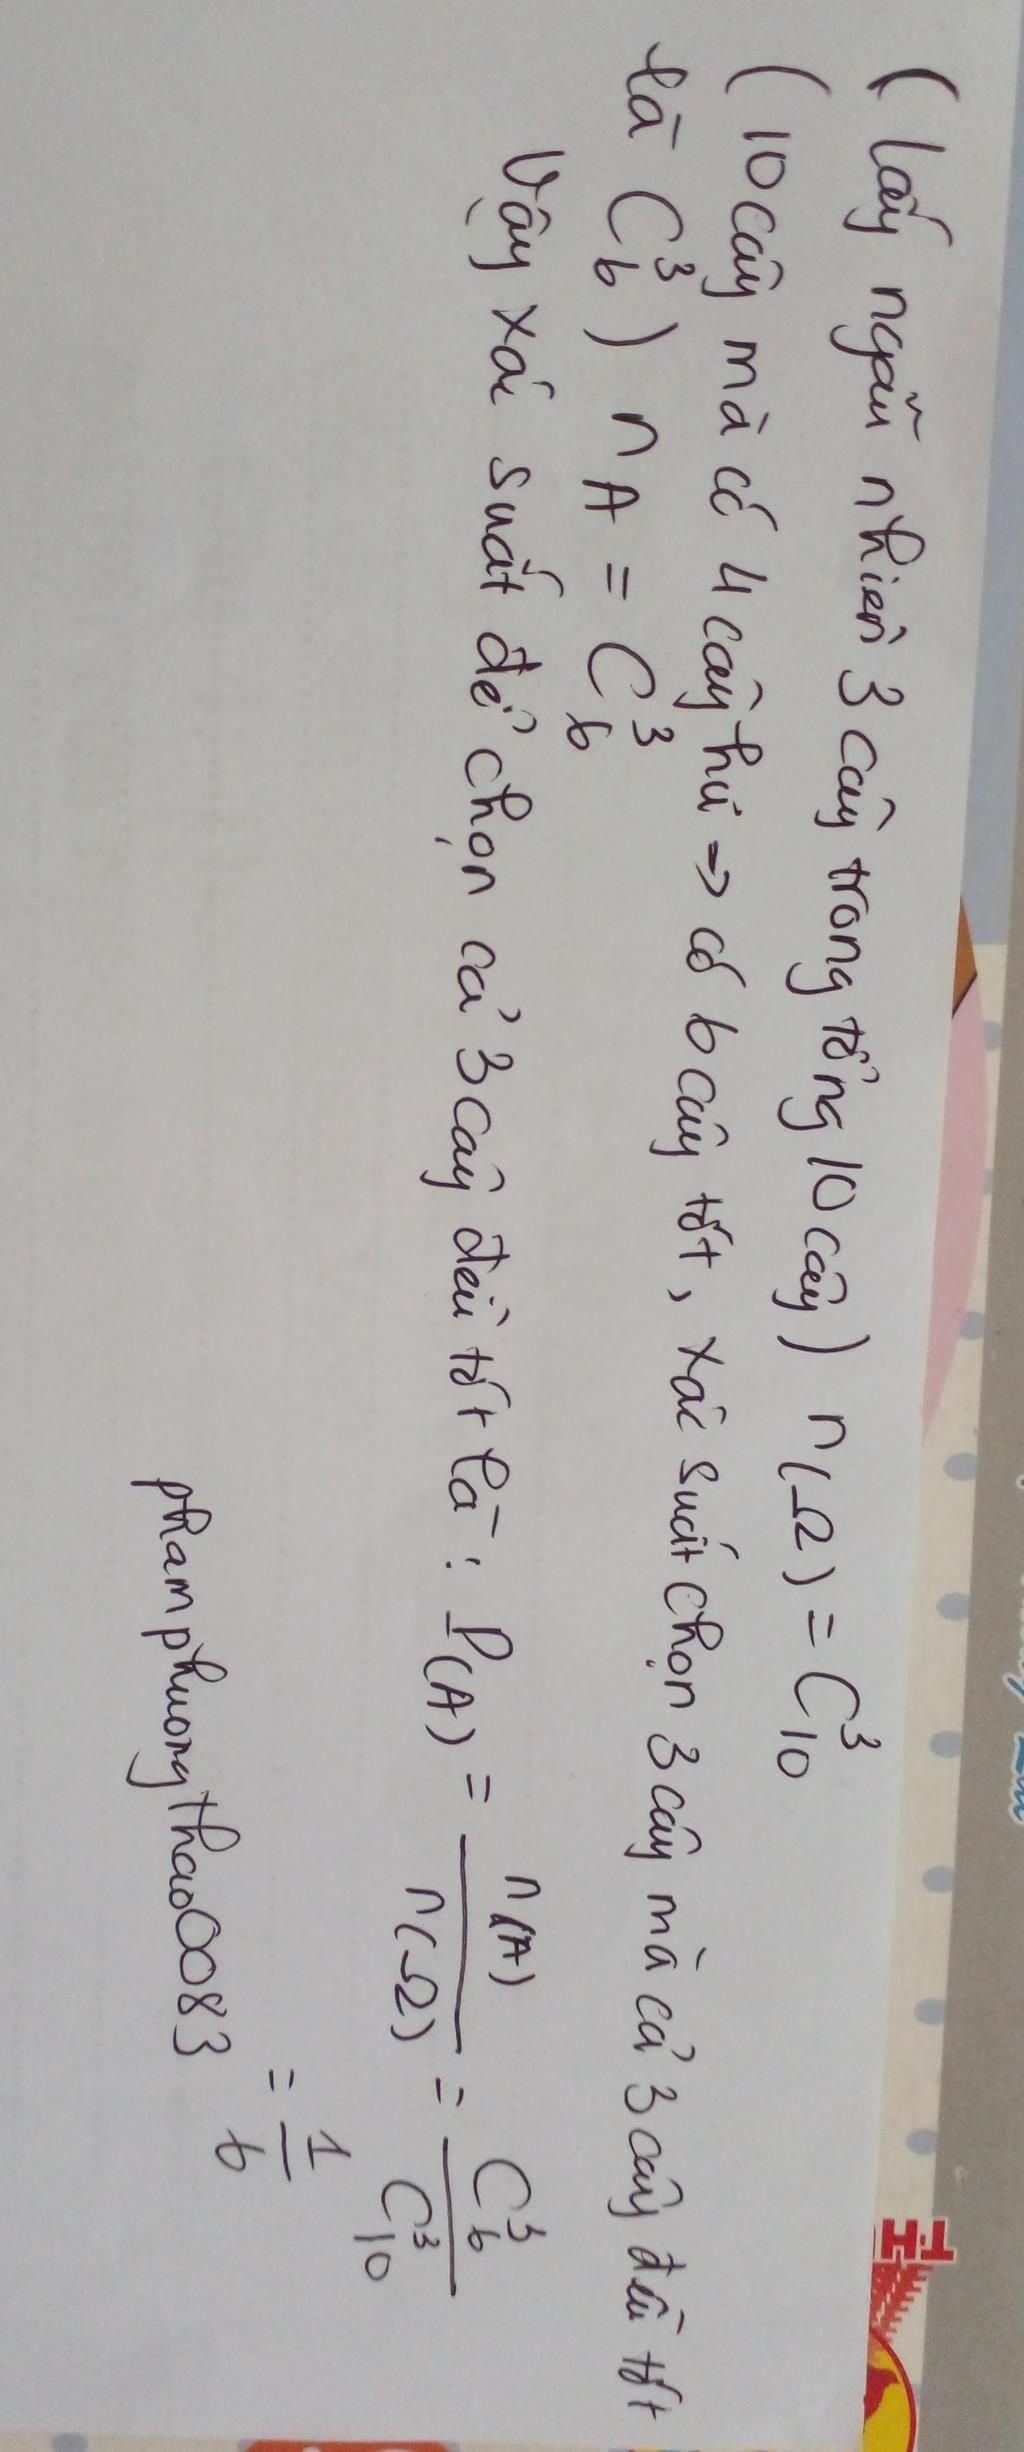 ( lấy ngẫu nhiên 3 cây trong tổng 10 cây) n(Ω) = C³₁₀
( 10 cây mà có 4 cây hư => có 6 cây tốt, xác suất chọn 3 cây mà cả 3 cây đều tốt
là C³₆ ) n A = C³₆
Vậy xác suất để chọn cả 3 cây đều tốt là : P(A) = n(A) / n(Ω) = C³₆ / C³₁₀
= 1 / 6
phamphuongthao0083